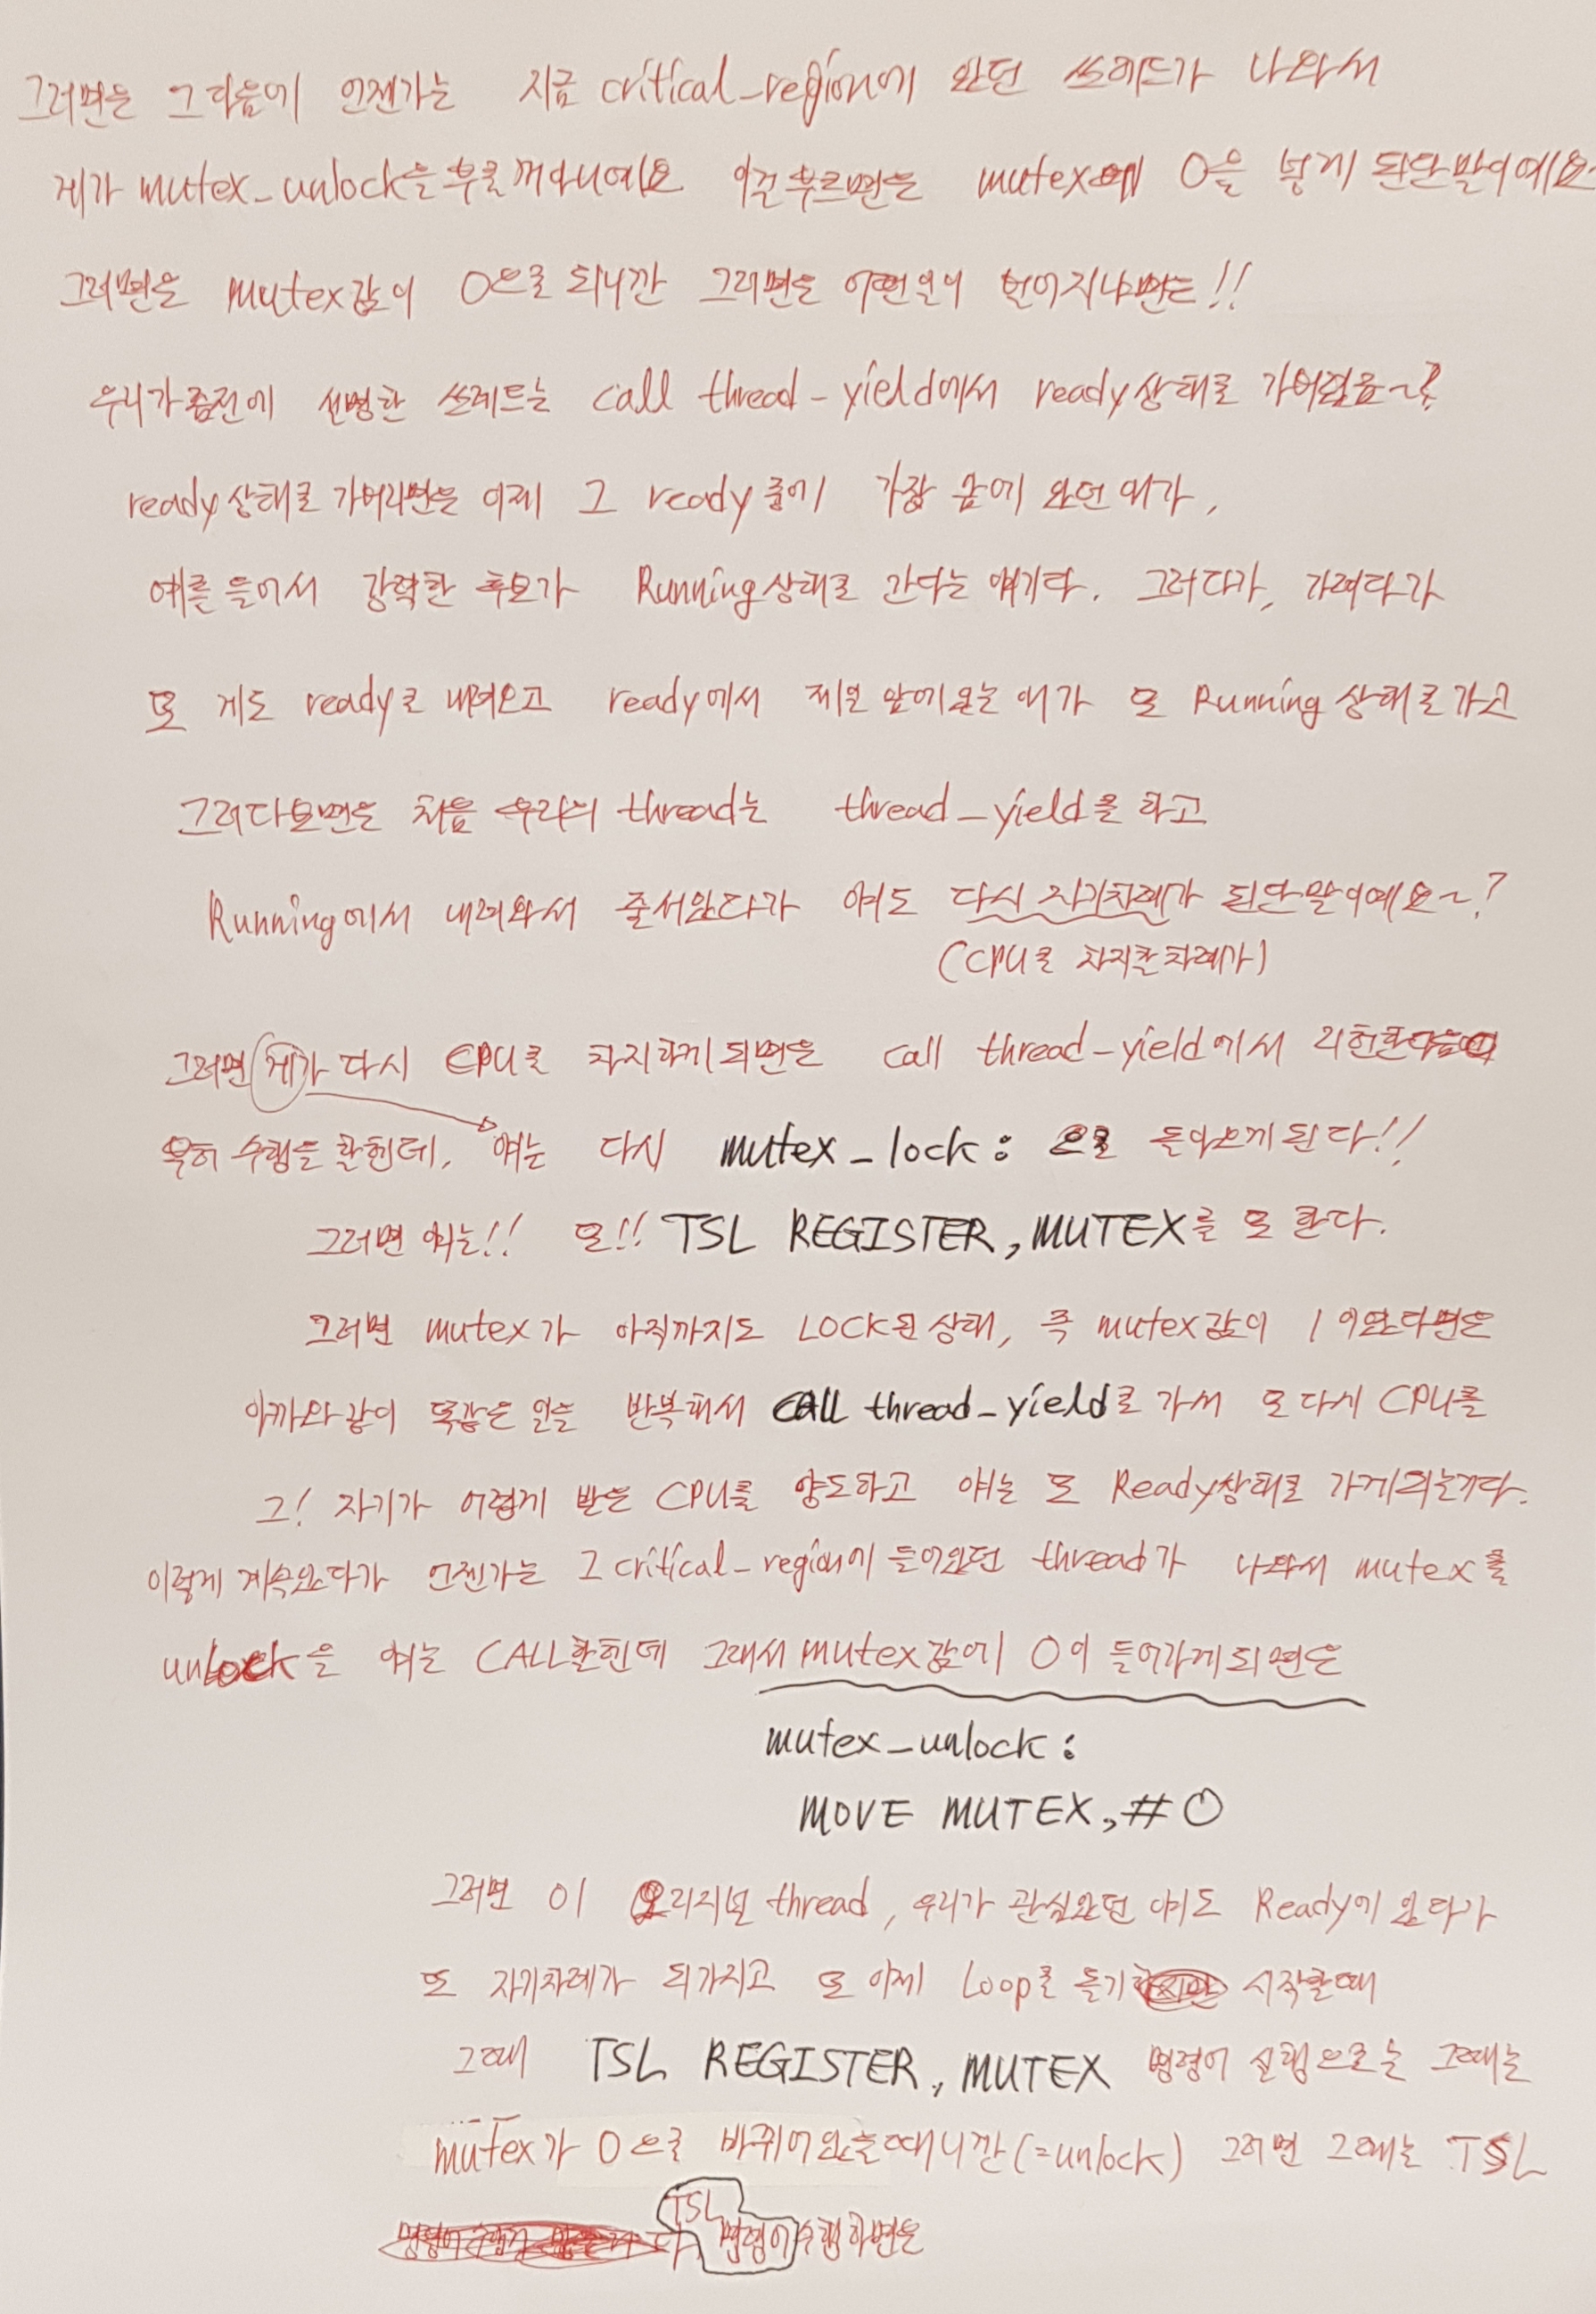 그러면은 그 다음에 언젠가는 지금 critical_region에 있던 쓰레드가 나와서
게가 mutex_unlock을 부를꺼아니에요 이걸 부르면은 mutex에 0을 넣게 된단말이에요
그러면은 mutex값이 0으로 되니깐 그러면은 어떤일이 벌어지냐면는!!
우리가 좀전에 설명한 쓰레드는 call thread_yield에서 ready상태로 가버렸죠~?
ready상태로 가버리면은 이제 그 ready줄에 가장 끝에 있던 얘가,
예를 들어서 강력한 후보가 Running상태로 간다는 얘기다. 그러다가, 가려다가
또 게도 ready로 내려오고 ready에서 제일 앞에있는 얘가 또 Running상태로가고
그러다보면은 처음 우리의 thread는 thread_yield를 하고
Running에서 내려와서 줄서있다가 얘도 다시 자기차례가 된단말이예요~?
(CPU를 차지할차례가)
그러면 게가 다시 CPU를 차지하게되면은 call thread_yield에서 리턴한다음에
쭉허 수행을 할텐데, 얘는 다시 mutex_lock: 으로 돌아오게 된다!!
그러면 얘는!! 또!! TSL REGISTER, MUTEX를 또 한다.
그러면 mutex가 아직까지도 LOCK된상태, 즉 mutex값이 1이었다면은
아까와같이 똑같은 일을 반복해서 CAll thread_yield로 가서 또 다시 CPU를
그! 자기가 어렵게 받은 CPU를 양도하고 얘는 또 Ready상태로 가게되는거다.
이렇게 계속있다가 언젠가는 그 critical_region에 들어있던 thread가 나와서 mutex를
unlock을 얘는 CALL할텐데 그래서 mutex값에 0이 들어가게되면은
mutex_unlock:
MOVE MUTEX, #0
그러면 이 오리지널 thread, 우리가 관심있던 얘도 Ready에 있다가
또 자기차례가 되가지고 또 이제 Loop를 돌기 시작할때
그때 TSL REGISTER, MUTEX 명령어 실행으로는 그때는
mutex가 0으로 바뀌어 있을때니깐(=unlock) 그러면 그때는 TSL
TSL 명령어수행하면은